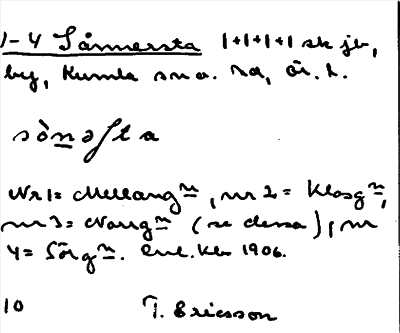 1-4 Sånnersta 1+1+1+1 sk jb,
by, Kumla sn o. hd, Ör. l.
sònəʃta
Nr 1 = Mellang~, nr 2 = Klosg~,
nr 3 = Norrg~ (se dessa), nr
4 = Sörg~. Enl. Kb 1906.
10 T. Ericsson